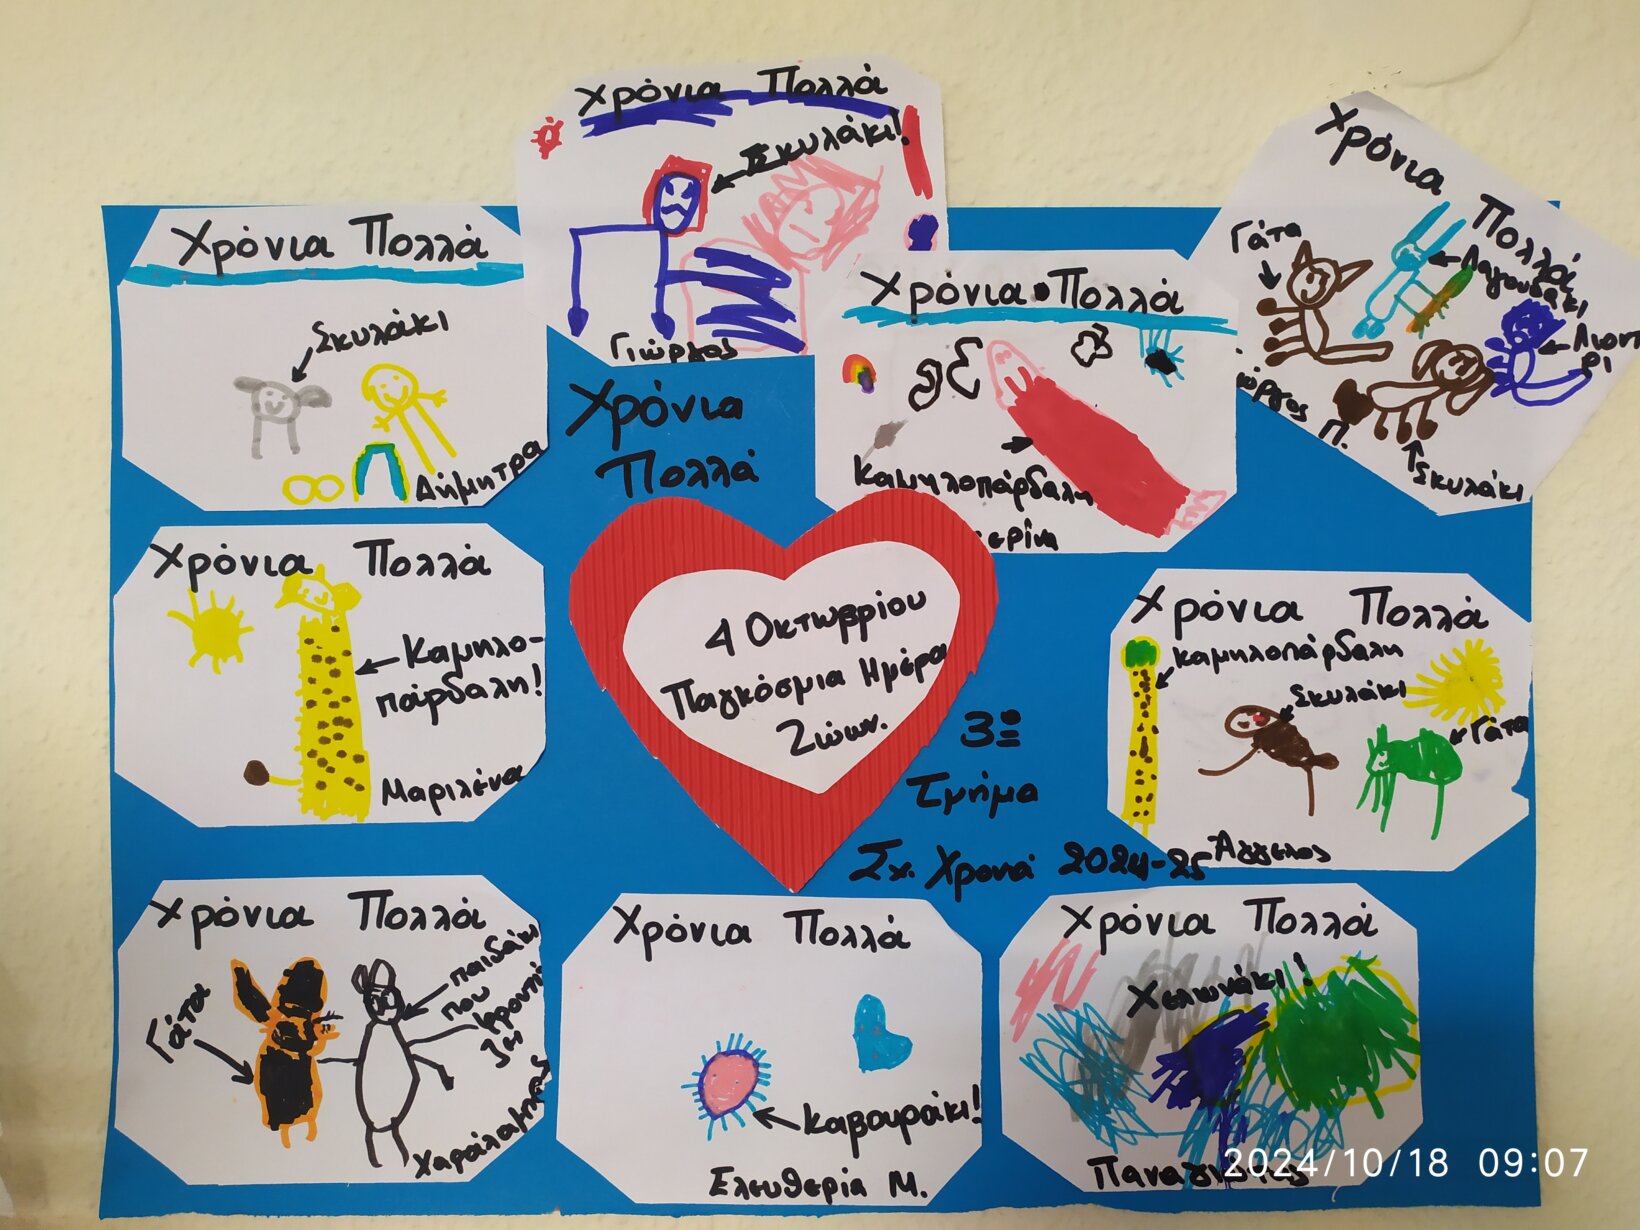 Χρόνια Πολλά
Σκυλάκι!
Γιώργος
Χρόνια Πολλά
Γάτα
Λαγουδάκι
Λιοντ
ρι
Σκυλάκι
ιώργος Π.
Χρόνια Πολλά
Σκυλάκι
Δήμητρα
Χρόνια
Πολλά
Χρόνια Πολλά
Καμηλοπάρδαλη
ερίνα
Χρόνια Πολλά
Καμηλο-
πάρδαλη!
Μαριλένα
4 Οκτωβρίου
Παγκόσμια Ημέρα
Ζώων.
3ο
Τμήμα
Σχ. Χρονιά 2024-25
Χρόνια Πολλά
καμηλοπάρδαλη
Σκυλάκι
Γάτα
Άγγελος
Χρόνια Πολλά
Γάτα
παιδάκι
που
φροντί
ζει
Χαράλαμπος
Χρόνια Πολλά
Καβουράκι!
Ελευθερία Μ.
Χρόνια Πολλά
Χελωνάκι!
Παναγιώτης
2024/10/18 09:07